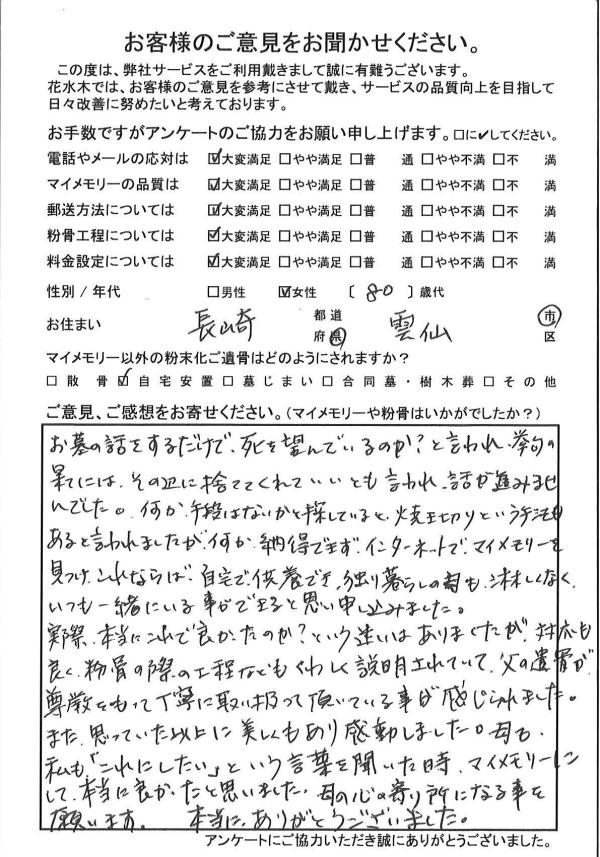 お客様のご意見をお聞かせください。
この度は、弊社サービスをご利用戴きまして誠に有難うございます。
花水木では、お客様のご意見を参考にさせて戴き、サービスの品質向上を目指して
日々改善に努めたいと考えております。
お手数ですがアンケートのご協力をお願い申し上げます。□に✔してください。
電話やメールの応対は ☑大変満足 □やや満足 □普 通 □やや不満 □不 満
マイメモリーの品質は ☑大変満足 □やや満足 □普 通 □やや不満 □不 満
郵送方法については ☑大変満足 □やや満足 □普 通 □やや不満 □不 満
粉骨工程については ☑大変満足 □やや満足 □普 通 □やや不満 □不 満
料金設定については ☑大変満足 □やや満足 □普 通 □やや不満 □不 満
性別 / 年代 □男性 ☑女性 〔 80 〕歳代
お住まい 長崎 都道府県 雲仙 市区
マイメモリー以外の粉末化ご遺骨はどのようにされますか？
□散 骨 ☑自宅安置 □墓じまい □合同墓・樹木葬 □その他
ご意見、ご感想をお寄せください。(マイメモリーや粉骨はいかがでしたか？)
お墓の話をするだけで、死を望んでいるのか？と言われ、挙句の
果てには、その辺に捨ててくれていいとも言われ、話が進みませ
んでした。何か、手段はないかと探していると、焼き切りという手法も
あると言われましたが、何か、納得できず、インターネットで、マイメモリーを
見つけ、これならば、自宅で、供養でき、独り暮らしの母も、淋しくなく、
いつも一緒にいる事ができると思い申し込みました。
実際、本当にこれで良かったのか？という迷いはありましたが、対応も
良く、粉骨の際の工程などもくわしく説明されていて、父の遺骨が、
尊敬をもって丁寧に取り扱って頂いている事が感じられました。
また、思っていた以上に美しくもあり感動しました。母も、
私も「これにしたい」という言葉を聞いた時、マイメモリーに
して、本当に良かったと思いました。母の心の寄り所になる事を
願います。 本当に、ありがとうございました。
アンケートにご協力いただき誠にありがとうございました。